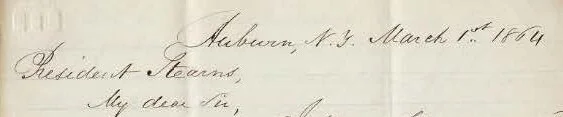 Auburn, N.Y. March 1st 1864
President Stearns,
My dear Sir,